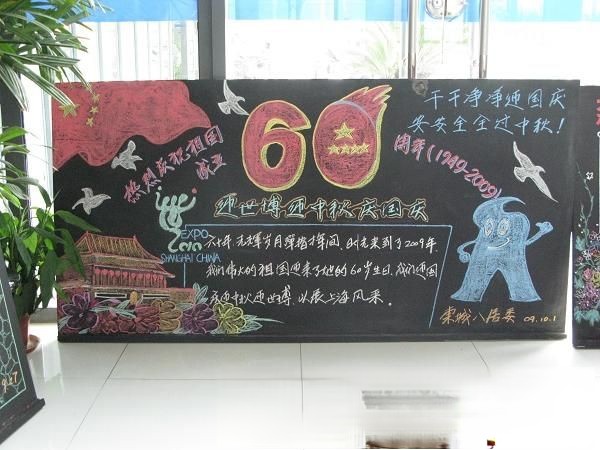 热烈庆祝祖国
成立
60
周年(1949-2009)
干干净净迎国庆
安安全全过中秋!
迎世博迎中秋庆国庆
EXPO
2010
SHANGHAI CHINA
六十年光辉岁月弹指一挥间,时光来到了2009年,
我们伟大的祖国迎来了她的60岁生日,我们迎国
庆迎中秋迎世博,以展上海风采。
八居委 09.10.1
9.27